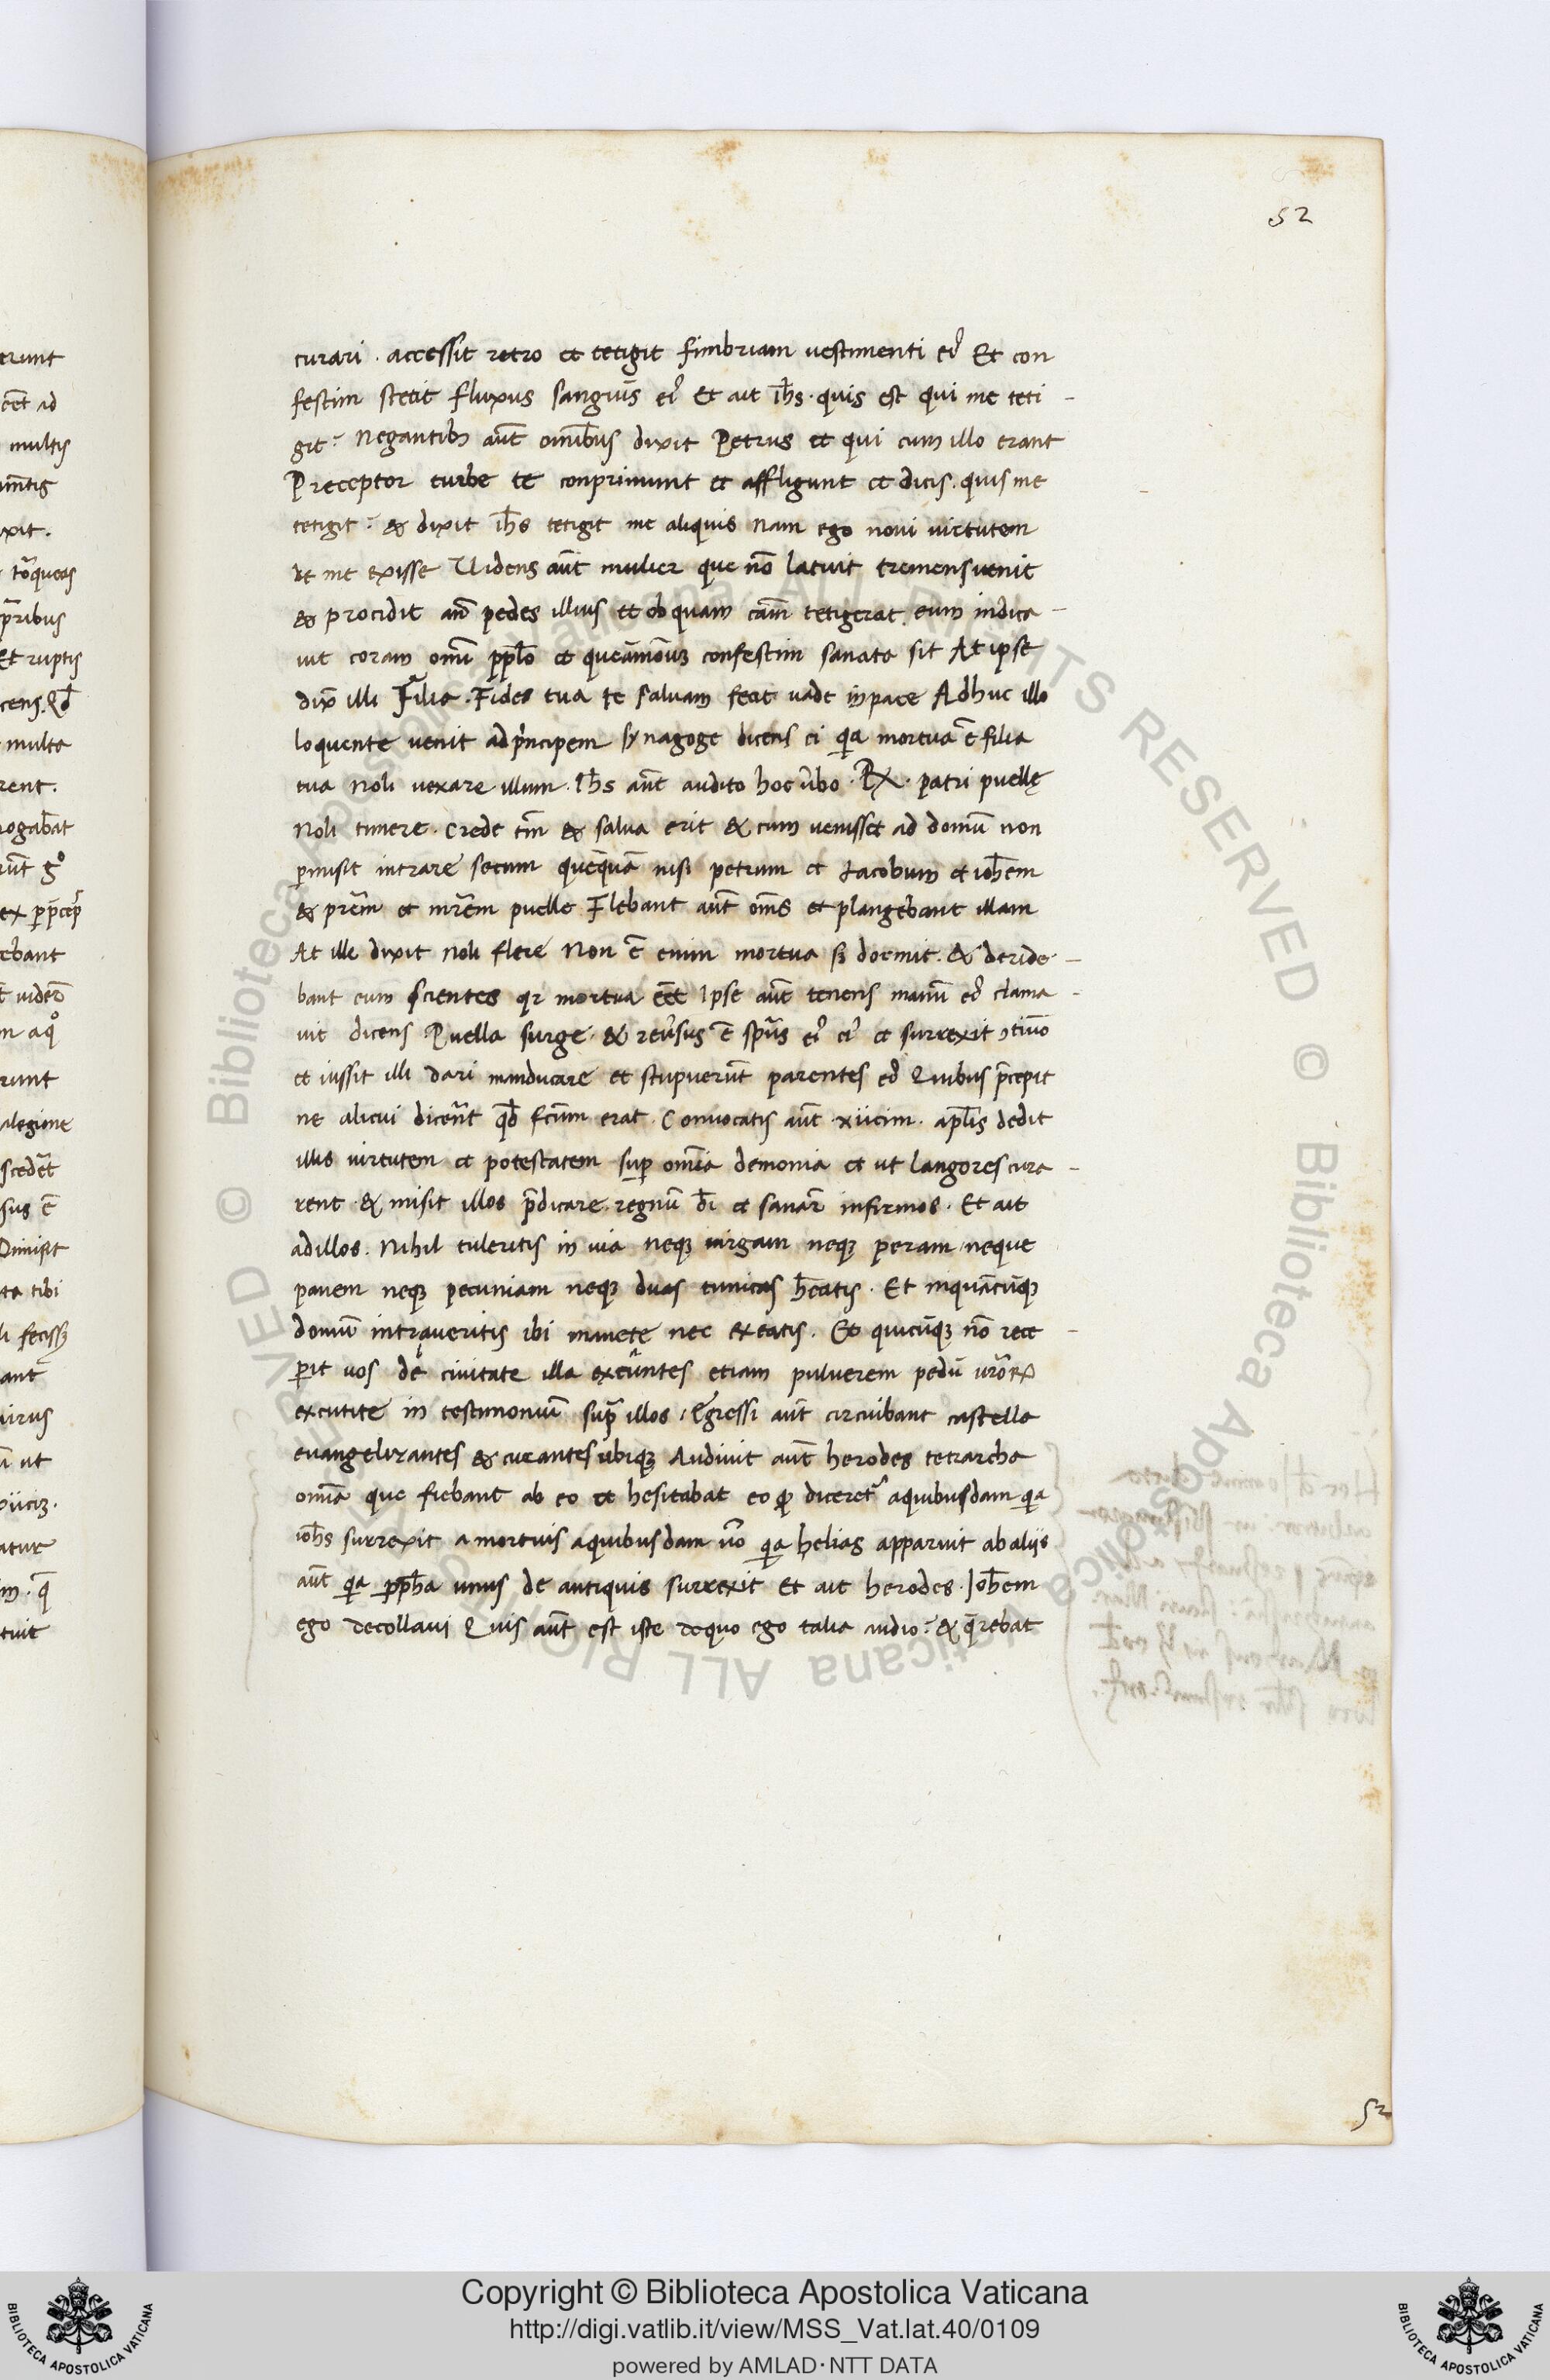 52
curari . accessit retro et tetigit fimbriam vestimenti eꝰ Et con
festim stetit fluxus sanguīs eiꝰ Et ait ih̄s . quis est qui me teti -
git? Negantibꝫ aūt omībus dixit Petrus et qui cum illo erant
Preceptor turbe te conprimunt et affligunt et dicis . quis me
tetigit? & dixit ih̄s tetigit me aliquis Nam ego novi virtutem
de me exisse Uidens aūt mulier que nō latuit tremens venit
& procidit an̄ pedes illius et ob quam cām tetigerat eum indica -
vit coram omī pp̄lo et queāmōuꝫ confestim sanata sit At ipse
dix̄ illi Filia . Fides tua te salvam fecit vade in pace Adhuc illo
loquente venit ad p̄ncipem synagoge dicens ei qia mortua ē filia
tua Noli vexare illum . Ih̄s aūt audito hoc v̄bo . RX . patri puellę
Noli timere . crede tm̄ & salva erit & cum venisset ad domū non
ꝑmisit intrare secum quēquā nisi petrum et Iacobum et ioh̄em
& pr̄em et mr̄em puelle Flebant aūt om̄s et plangebant illam
At ille dixit Noli flere Non ē enim mortua sꝫ dormit . & deride -
bant eum scientes qr mortua eēt Ipse aūt tenens manū eꝰ clama -
vit dicens Puella surge . & rev̄sus ē sp̄us eiꝰ eiꝰ et surrexit ꝯtinuo
et iussit illi dari manducare et stupuerūt parentes eꝰ Quibus p̄cepit
ne alicui dicer̄t qđ fc̄um erat . Convocatis aūt . xiicim . apl̄is dedit
illis virtutem et potestatem suꝑ omīa demonia et ut langores cura -
rent . & misit illos p̄dicare . regnū dī et sanar̄ infirmos . Et ait
ad illos . Nihil tuleritis in via neqꝫ virgam neqꝫ peram neque
panem neqꝫ pecuniam neqꝫ duas tunicas h̄eatis . Et in quācūqꝫ
domū intraveritis ibi manete nec exeatis . Et quicūqꝫ nō rece -
ꝑit vos de civitate illa exeuntes etiam pulverem pedū vr̄oꝝ
excutite in testimoniū sup̄ illos . Egressi aūt circuibant castella
evangelizantes & curantes ubiqꝫ Audivit aūt herodes tetrarcha
omīa que fiebant ab eo et hesitabat eo ꝙ diceret̄ a quibusdam qia
ioh̄s surrexit a mortuis a quibusdam v̄o qia helias apparuit ab aliis
aūt qia pp̄ha unus de antiquis surrexit Et ait herodes . Ioh̄em
ego decollavi Quis aūt est iste de quo ego talia audio? & q̄rebat
52
Copyright © Biblioteca Apostolica Vaticana
http://digi.vatlib.it/view/MSS_Vat.lat.40/0109
powered by AMLAD·NTT DATA
BIBLIOTECA APOSTOLICA VATICANA
BIBLIOTECA APOSTOLICA VATICANA